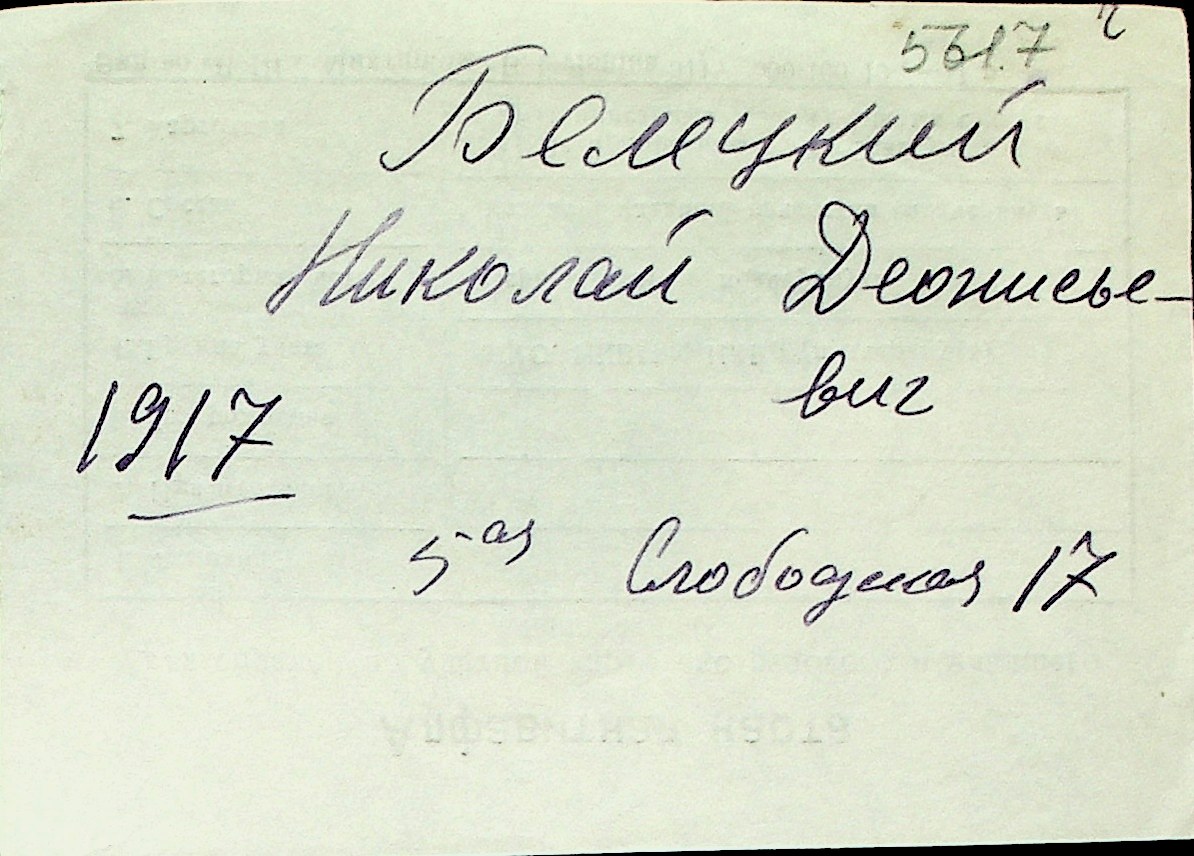 5617
Белецкий
Николай Деонисье-
вич
1917
5ая Слободская 17